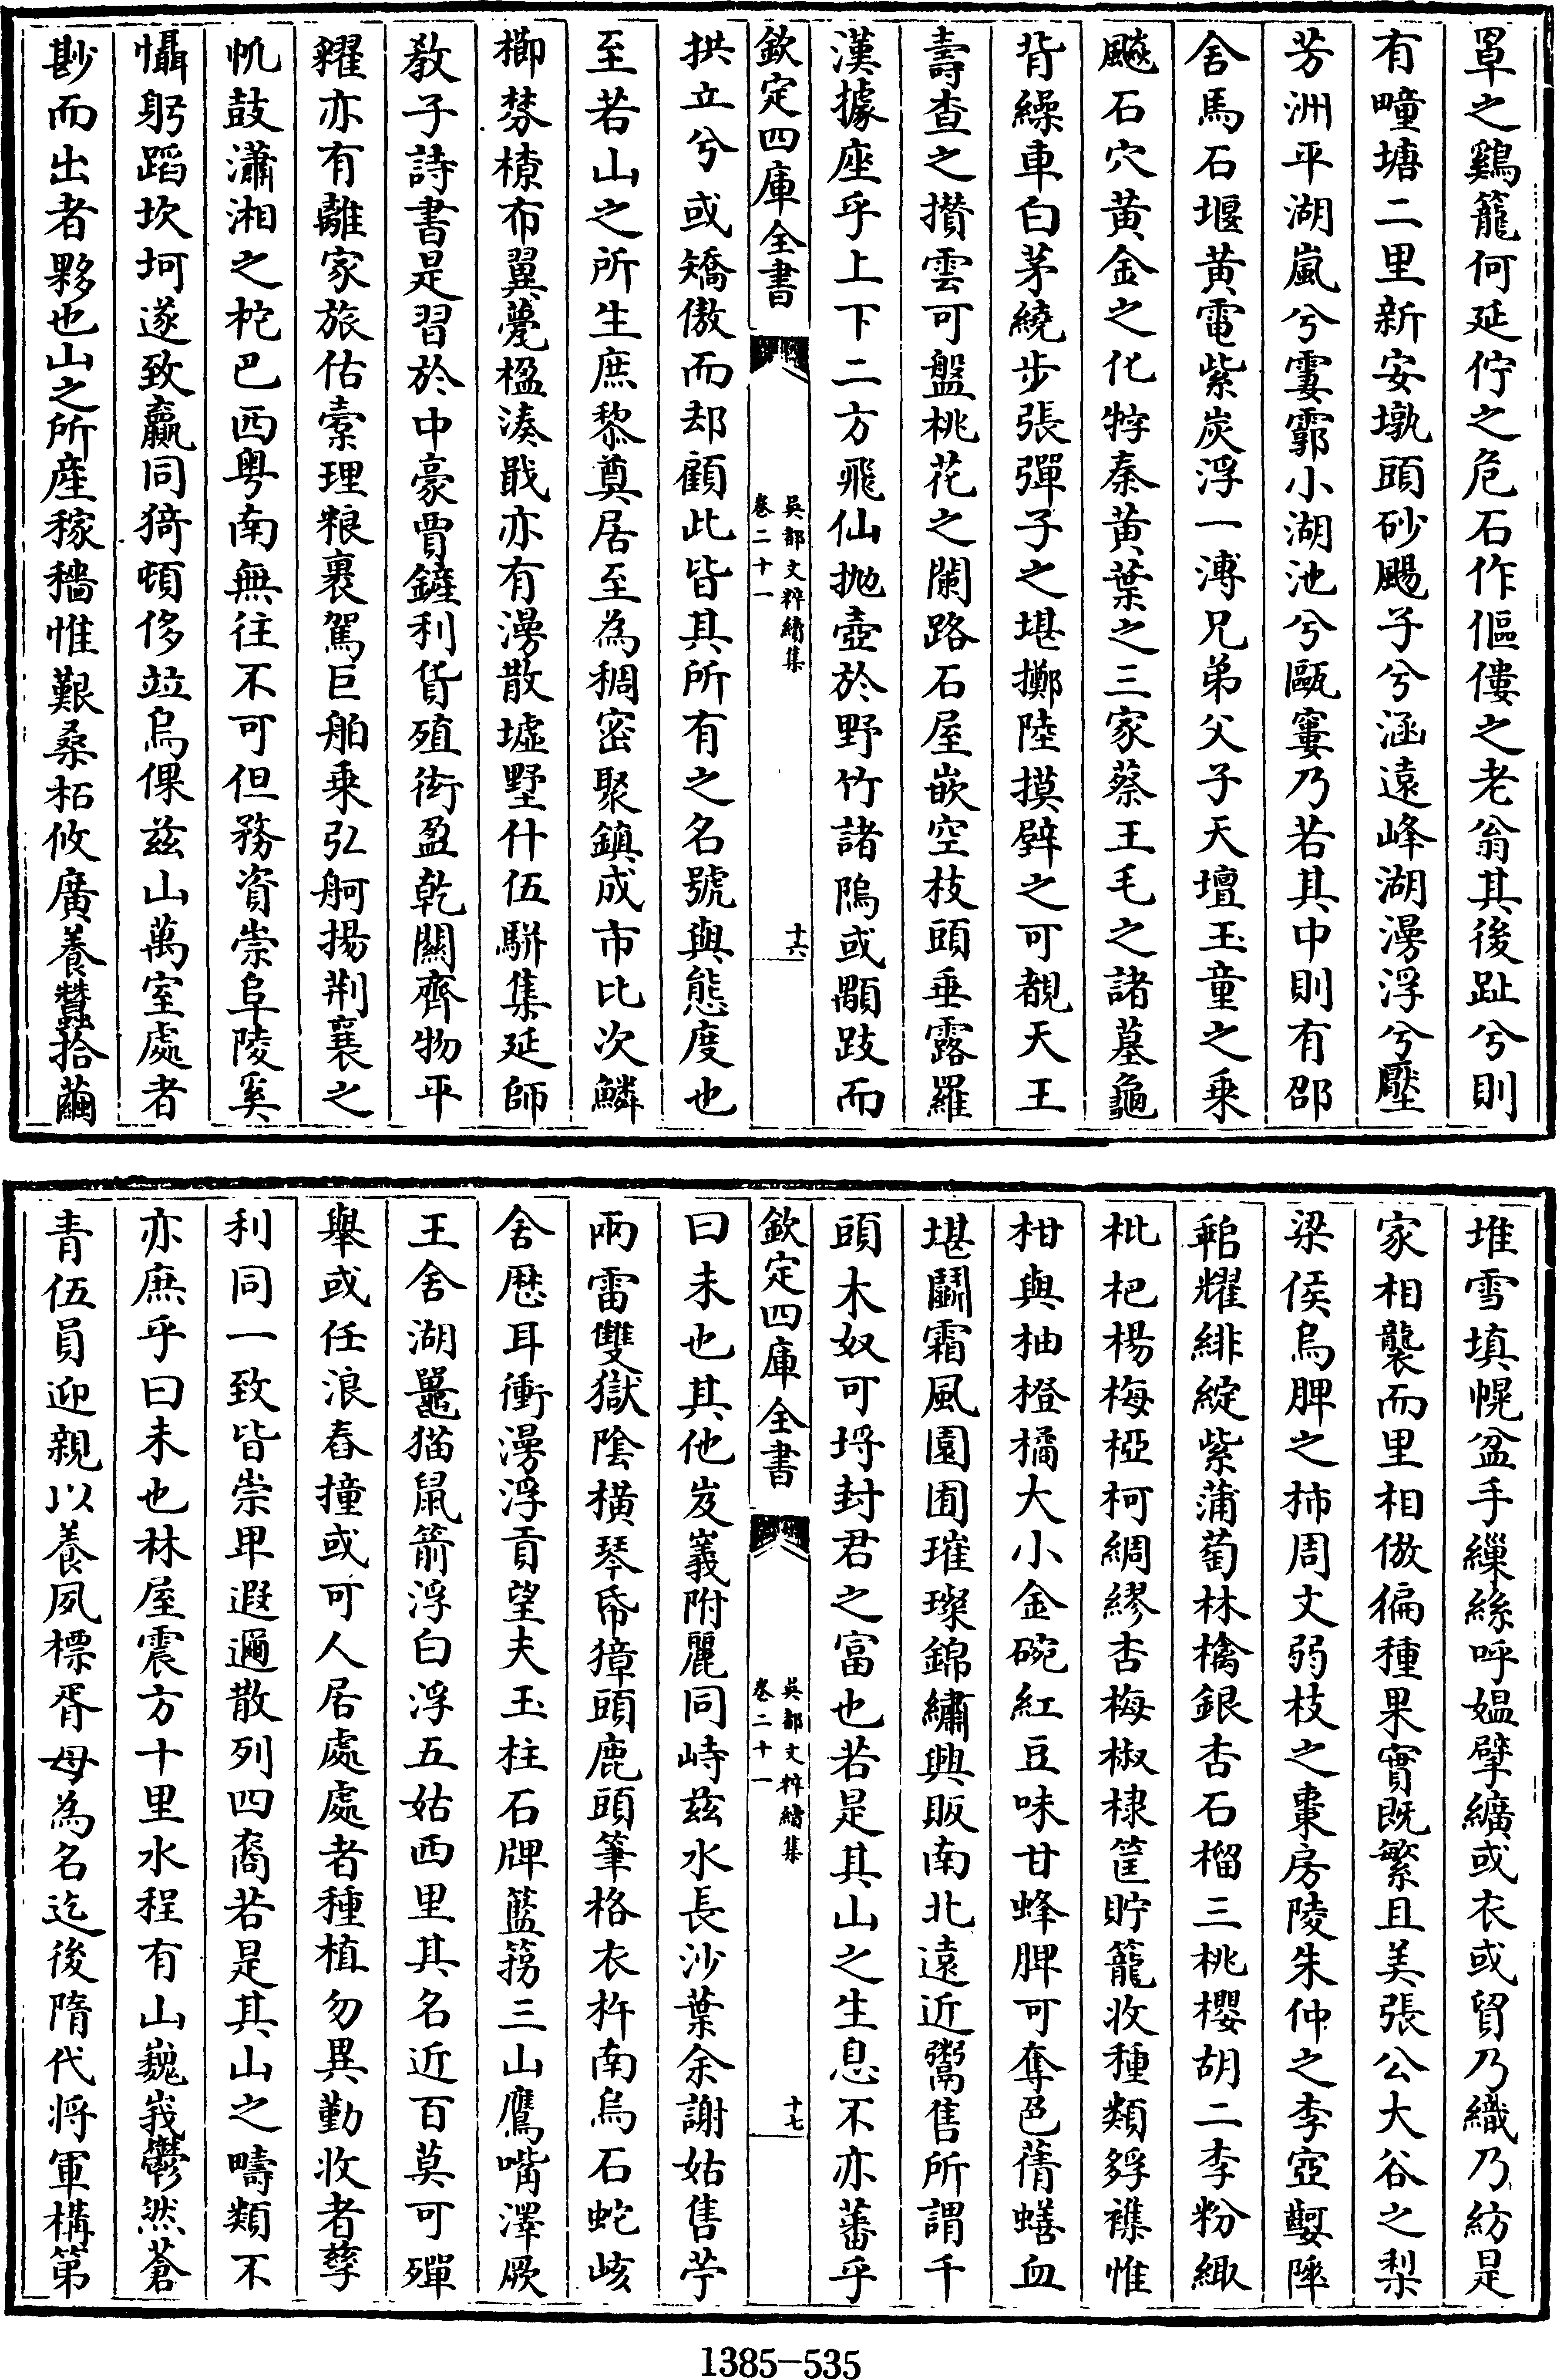 罩之鷄籠何延佇之危石作傴僂之老翁其後趾兮則
有疃塘二里新安墩頭砂颺子兮涵遠峰湖澷浮兮壓
芳洲平湖嵐兮霎霩小湖池兮甌窶乃若其中則有邵
舍馬石堰黄電紫炭浮一溥兄弟父子天壇玉童之乗
飈石穴黄金之化牸秦黄葉之三家蔡王毛之諸墓龜
背繰車白茅繞步張彈子之堪擲陸摸壁之可覩天王
壽查之攢雲可盤桃花之闌路石屋嵌空枝頭垂露羅
漢據座乎上下二方飛仙抛壺於野竹諸隖或顒跂而
欽定四庫全書
吳都文粹續集
卷二十一
十六
拱立兮或矯傲而却顧此皆其所有之名號與態度也
至若山之所生庶黎奠居至為稠密聚鎮成市比次鱗
櫛棼橑布翼甍楹湊戢亦有澷散墟墅什伍騈集延師
教子詩書是習於中豪賈鏟利貨殖衒盈乾闗齊物平
糴亦有離家旅估橐理粮裹駕巨舶乗弘舸揚荆襄之
帆鼓瀟湘之柁巴西粤南無往不可但務資崇阜陵奚
懾躬蹈坎坷遂致贏同猗頓侈竝烏倮兹山萬室處者
尠而出者夥也山之所産稼穡惟艱桑柘攸廣養蠶拾繭
堆雪填幌盆手繅絲呼媪擘纊或衣或貿乃織乃紡是
家相襲而里相倣偏種果實既繁且美張公大谷之梨
梁侯烏脾之柿周文弱枝之棗房陵朱仲之李㝎㜌陣
䵍耀緋綻紫蒲萄林檎銀杏石榴三桃櫻胡二李粉緅
枇杷楊梅椏柯綢繆杏梅椒棣筐貯籠收種類殍襍惟
柑與柚橙橘大小金碗紅豆味甘蜂脾可奪邑蒨蟮血
堪鬭霜風園囿璀璨錦繡興販南北遠近鬻售所謂千
頭木奴可埒封君之富也若是其山之生息不亦蕃乎
欽定四庫全書
吳都文粹續集
卷二十一
十七
曰未也其他岌嶪附麗同峙兹水長沙葉余謝姑售苧
兩雷雙獄陰橫琴帋獐頭鹿頭筆格衣杵南烏石蛇峐
舍厯耳衝澷浮貢望夫玉柱石牌籃簩三山鷹嘴澤厥
王舍湖鼉猫鼠箭浮白浮五姑西里其名近百莫可殫
舉或任浪舂撞或可人居處處者種植勿異勤收者孳
利同一致皆崇卑遐邇散列四裔若是其山之疇類不
亦庶乎曰未也林屋震方十里水程有山巍峩鬱然蒼
青伍員迎親以養夙標胥母為名迄後隋代将軍構第
1385-535